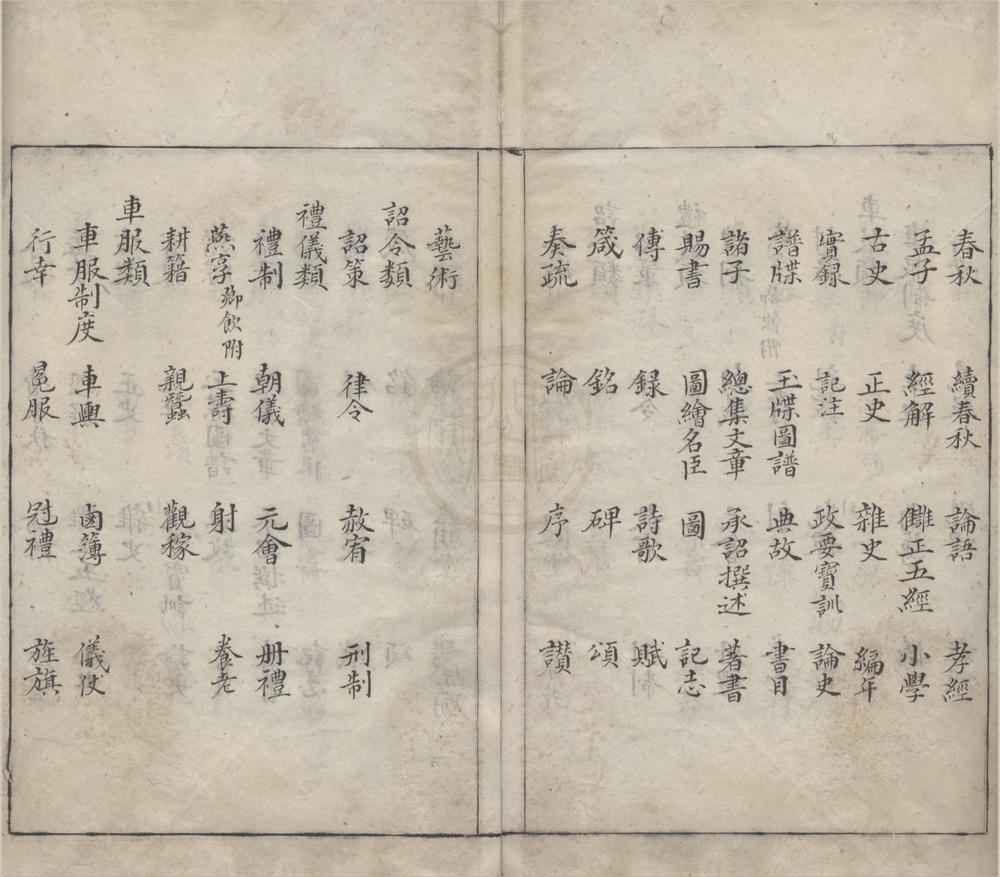 春秋 續春秋 論語 孝經
孟子 經解 讎正五經 小學
古史 正史 雜史 編年
實録 記注 政要寶訓 論史
譜牒 玉牒圖譜 典故 書目
諸子 總集文章 承詔撰述 著書
賜書 圖繪名臣 圖 記志
傳 録 詩歌 賦
箴 銘 碑 頌
奏疏 論 序 讃
藝術
詔令類
詔策 律令 赦宥 刑制
禮儀類
禮制 朝儀 元會 册禮
燕享鄉飲附 上壽 射 養老
耕籍 親蠶 觀稼
車服類
車服制度 車輿 鹵簿 儀仗
行幸 冕服 冠禮 旌旗